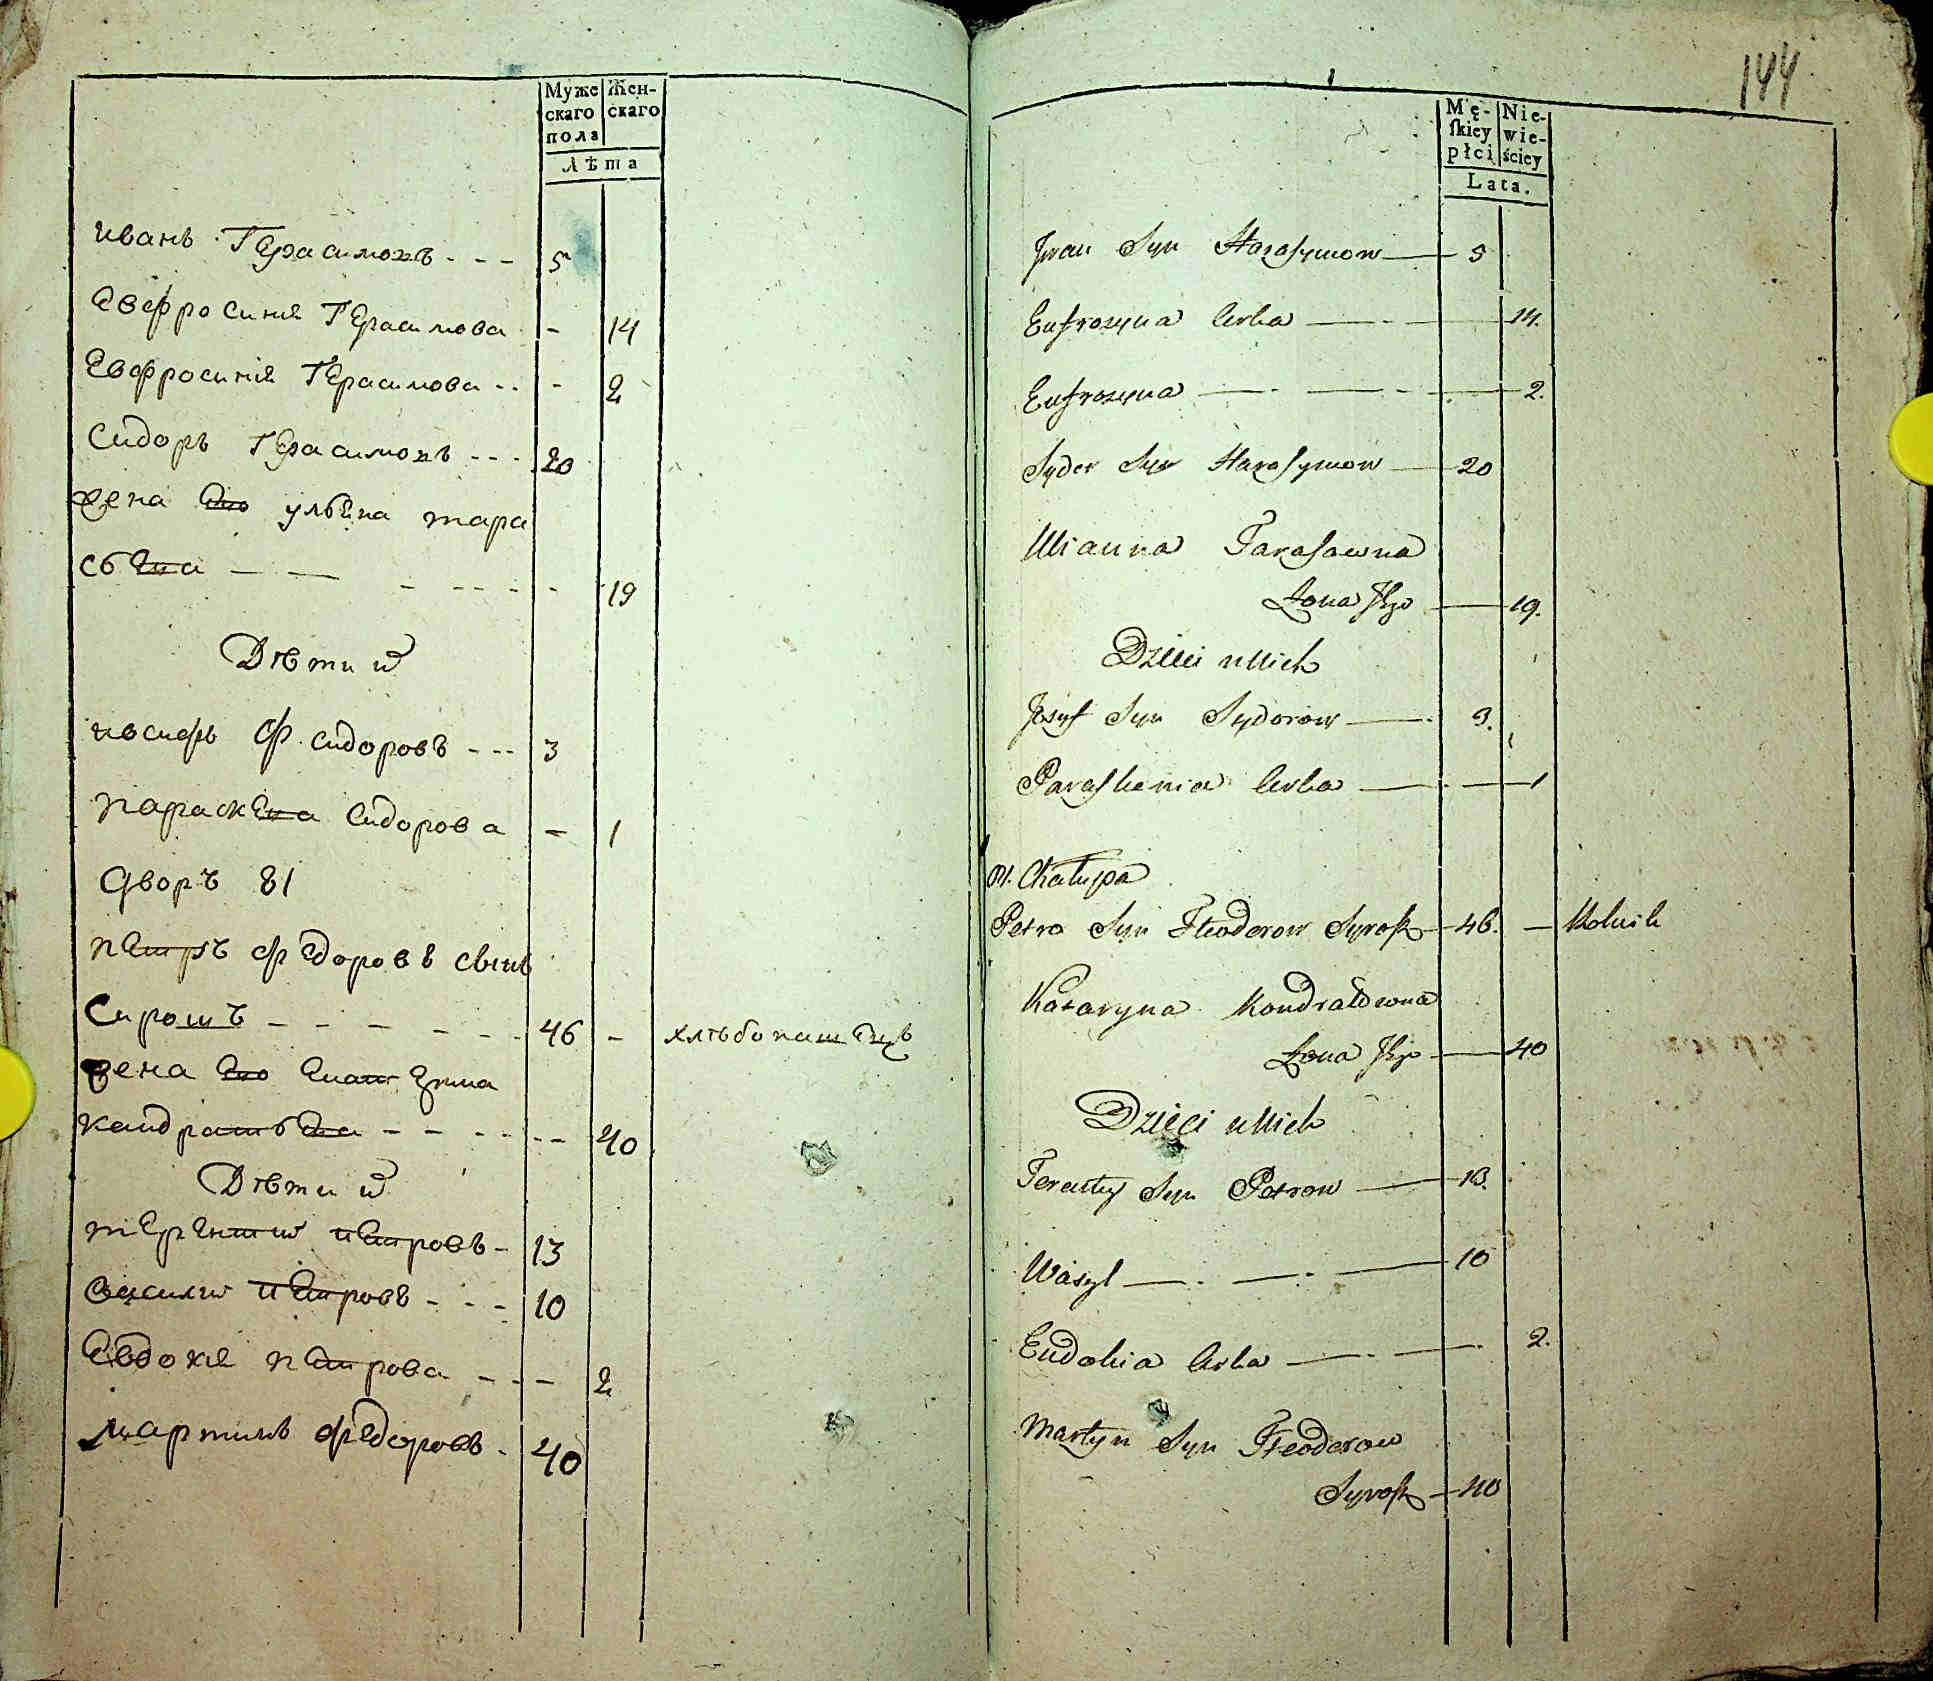 Муже
скаго
пола
Жен-
скаго
Лѣта
иванъ Герасимовъ - - - 5
Евфросиния Герасимова - 14
Евфросиния Герасимова - - - 2
Сидоръ Герасимовъ - - - 20
жена Его ульяна тара
сьева - - - - - - - 19
Дѣти их
иосифъ Ф сидоровъ - - - 3
параскева Сидорова - 1
Дворъ 81
петръ федоровъ сынъ
Сиротъ - - - - - - 46 - хлѣбопашецъ
жена Его Екатерина
кандратьева - - - - - - 40
Дѣти их
терентий петровъ - 13
василий петровъ - - - 10
Евдокия петрова - - - 2
мартинъ федоровъ - 40
144
Mę-
ſkiey
płci
Nie-
wie-
ściey
Lata.
Jwan Syn Harasymow — 5
Eufrozyna Corka — 14.
Eufrozyna — 2.
Syder Syn Harasymow — 20
Ulianna Tarasowna
Żona Jego — 19.
Dzieci u Nich
Jozyf Syn Sydorow — 3.
Paraskewia Corka — 1
81. Chałupa
Petro Syn Fteodorow Syrot — 46. — Rolnik
Katarzyna Kondratowna
Żona Jego — 40
Dzieci u Nich
Terenty Syn Petrow — 13.
Wasyl — 10
Eudokia Corka — 2.
Martyn Syn Fteodorow
Syrot — 40